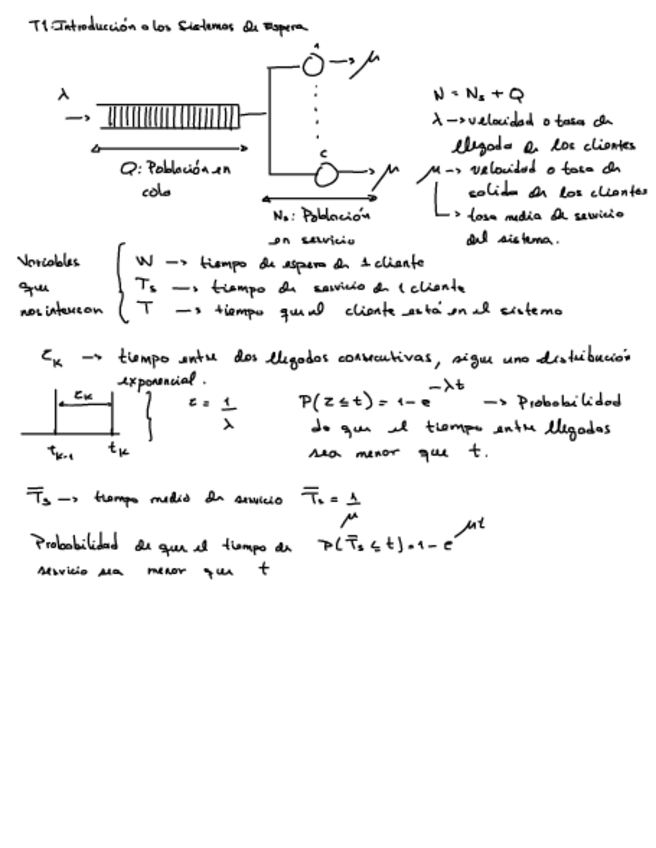 T1: Introducción a los Sistemas de Espera
λ
1
μ
Q: Población en
cola
c
μ
Ns: Población
en servicio
N = Ns + Q
λ → velocidad o tasa de
llegada de los clientes
μ → velocidad o tasa de
salida de los clientes
↳ tasa media de servicio
del sistema.
Variables
que
nos interesan
W → tiempo de espera de 1 cliente
Ts → tiempo de servicio de 1 cliente
T → tiempo que el cliente está en el sistema
τk → tiempo entre dos llegadas consecutivas, sigue una distribución
exponencial.
τk
tk-1 tk
τ = 1/λ
P(τ ≤ t) = 1 - e^-λt → Probabilidad
de que el tiempo entre llegadas
sea menor que t.
T̄s → tiempo medio de servicio T̄s = 1/μ
Probabilidad de que el tiempo de P(T̄s ≤ t) = 1 - e^μt
servicio sea menor que t